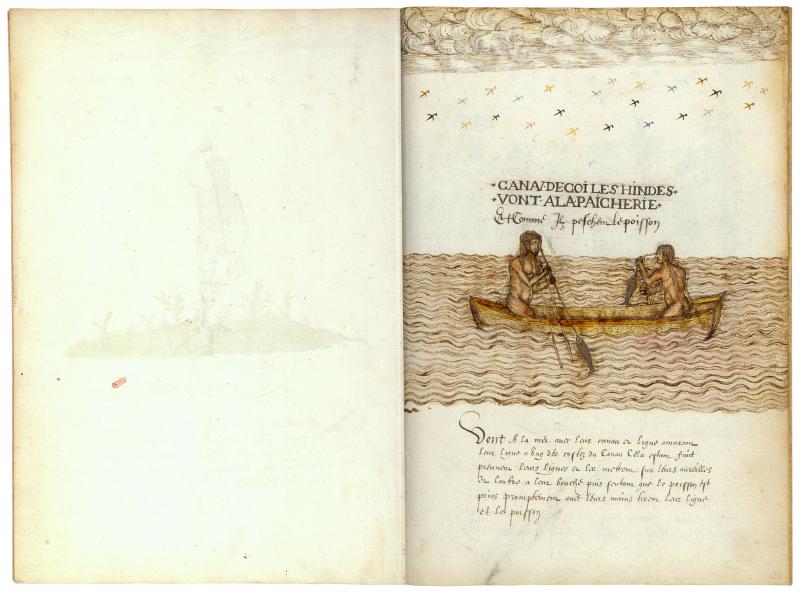 ·CANAV·DECOI LES HINDES·
·VONT·ALAPAICHERIE·
Et Comme Ilz peschen le poisson
Vont A la mer avec leur canau et ligne amaram
leur ligne a bug des costez du Canau Cela estam faict
prennem leurs lignes et les mettem sur leurs aureilles
et lautre a leur bouche puis sentans que le poisson est
prins promptemem avec leurs mains tirem leur ligne
et le poisson